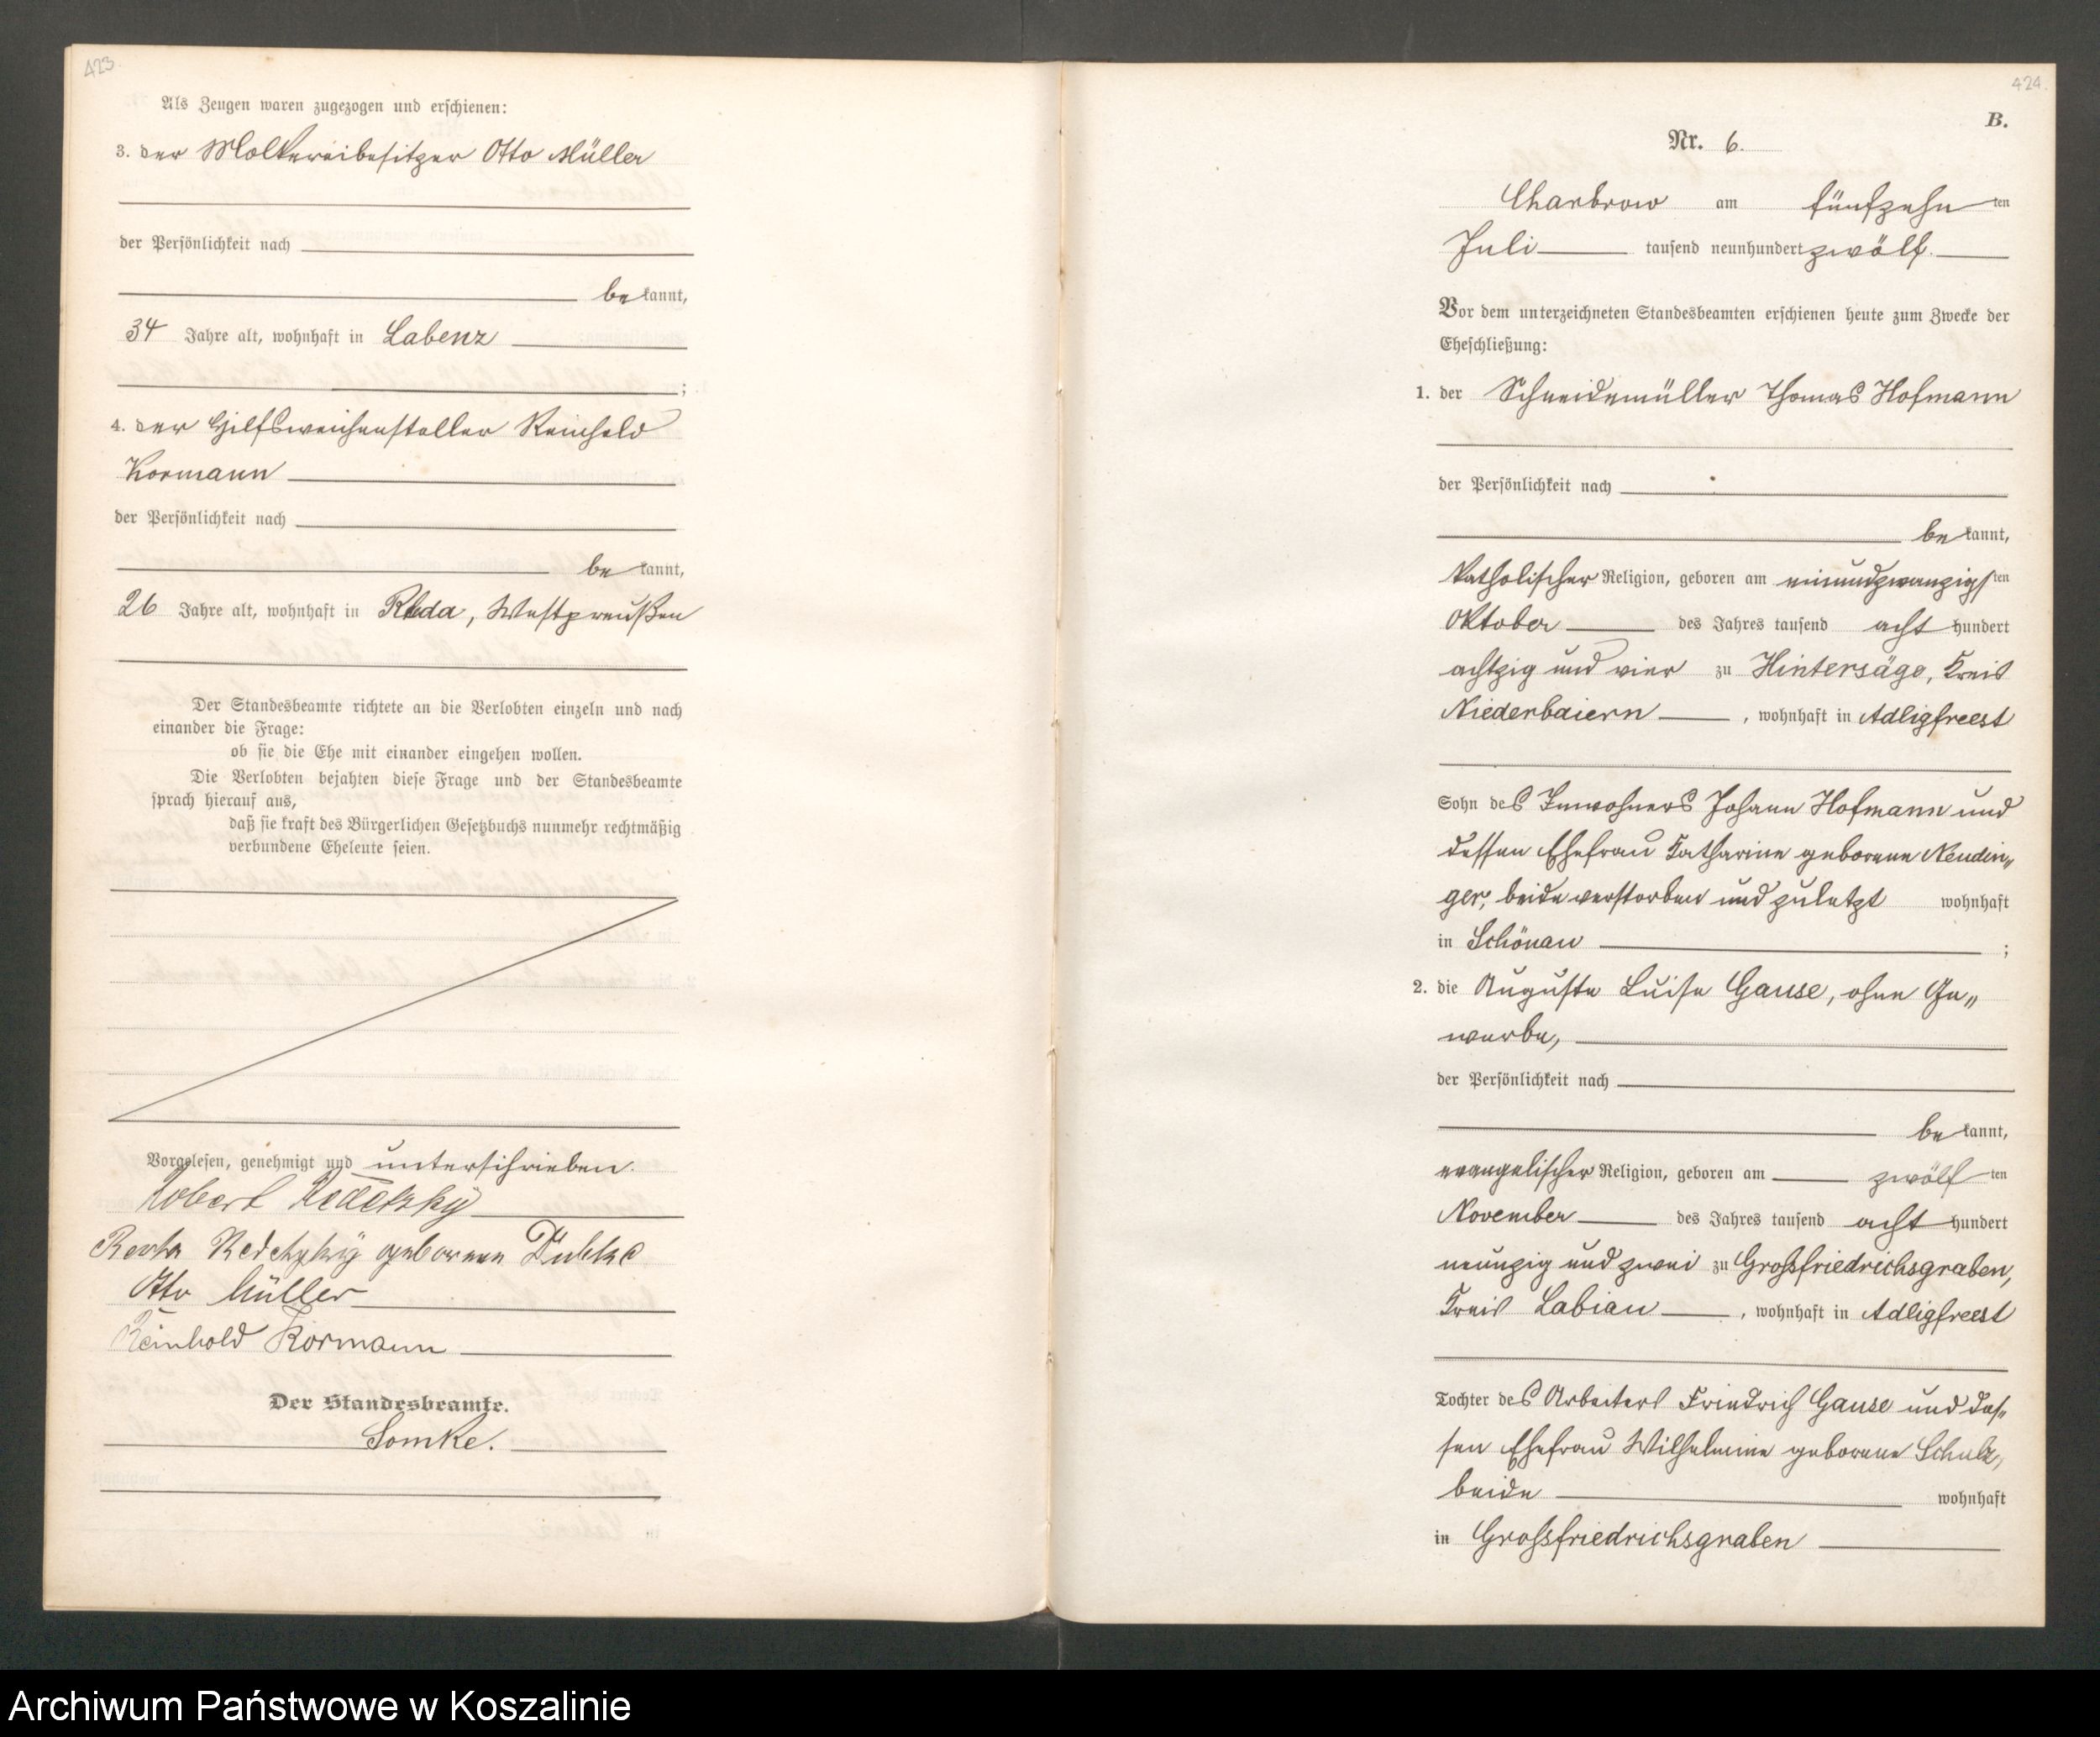 423.
Als Zeugen waren zugezogen und erschienen:
3. der Molkereibesitzer Otto Müller
der Persönlichkeit nach
be kannt,
34 Jahre alt, wohnhaft in Labenz
;
4. der Hilfsweichensteller Reinhold
Kormann
der Persönlichkeit nach
be kannt,
26 Jahre alt, wohnhaft in Rheda, Westpreußen
Der Standesbeamte richtete an die Verlobten einzeln und nach
einander die Frage:
ob sie die Ehe mit einander eingehen wollen.
Die Verlobten bejahten diese Frage und der Standesbeamte
sprach hierauf aus,
daß sie kraft des Bürgerlichen Gesetzbuchs nunmehr rechtmäßig
verbundene Eheleute seien.
Vorgelesen, genehmigt und unterschrieben.
Robert
geborene
Otto Müller
Reinhold Kormann
Der Standesbeamte.
Somke.
424.
B.
Nr. 6.
Charbrow am fünfzehn ten
Juli tausend neunhundert zwölf.
Vor dem unterzeichneten Standesbeamten erschienen heute zum Zwecke der
Eheschließung:
1. der Schneidemüller Thomas Hofmann
der Persönlichkeit nach
be kannt,
katholischer Religion, geboren am einundzwanzigsten
Oktober des Jahres tausend acht hundert
achtzig und vier zu Hintersäge, Kreis
Niederbaiern, wohnhaft in Adligfreest
Sohn des Inwohners Johann Hofmann und
dessen Ehefrau Katharine geborene Neudin„
ger, beide verstorben und zuletzt wohnhaft
in Schönau ;
2. die Auguste Luise Gause, ohne Ge„
werbe,
der Persönlichkeit nach
be kannt,
evangelischer Religion, geboren am zwölf ten
November des Jahres tausend acht hundert
neunzig und zwei zu Großfriedrichsgraben,
Kreis Labiau, wohnhaft in Adligfreest
Tochter des Arbeiters Friedrich Gause und des„
sen Ehefrau Wilhelmine geborene Schulz,
beide wohnhaft
in Großfriedrichsgraben
Archiwum Państwowe w Koszalinie